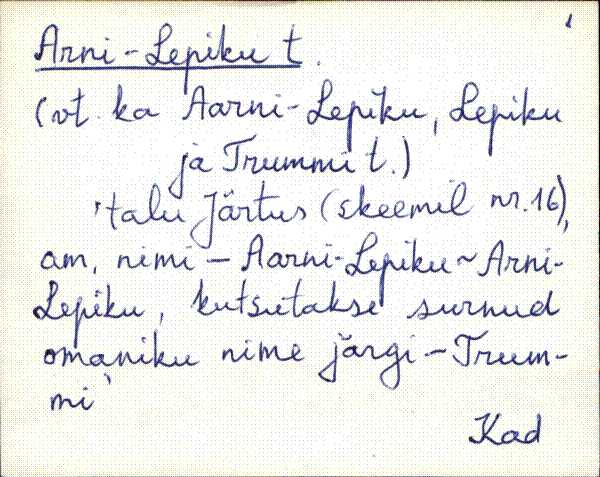 Arni-Lepiku t.
(vt. ka Aarni-Lepiku, Lepiku
ja Trummi t.)
'talu Järtus (skeemil nr.16),
am. nimi - Aarni-Lepiku ~ Arni-
Lepiku, kutsutakse surnud
omaniku nime järgi - Trum-
mi'
Kad